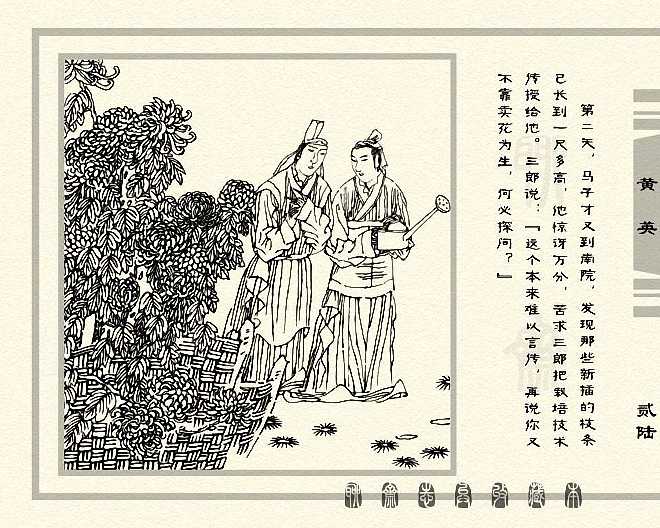 黄英
贰陆
第二天，马子才又到南院，发现那些新插的枝条
已长到一尺多高，他惊讶万分，苦求三郎把栽培技术
传授给他。三郎说：“这个本来难以言传，再说你又
不靠卖花为生，何必探问？”